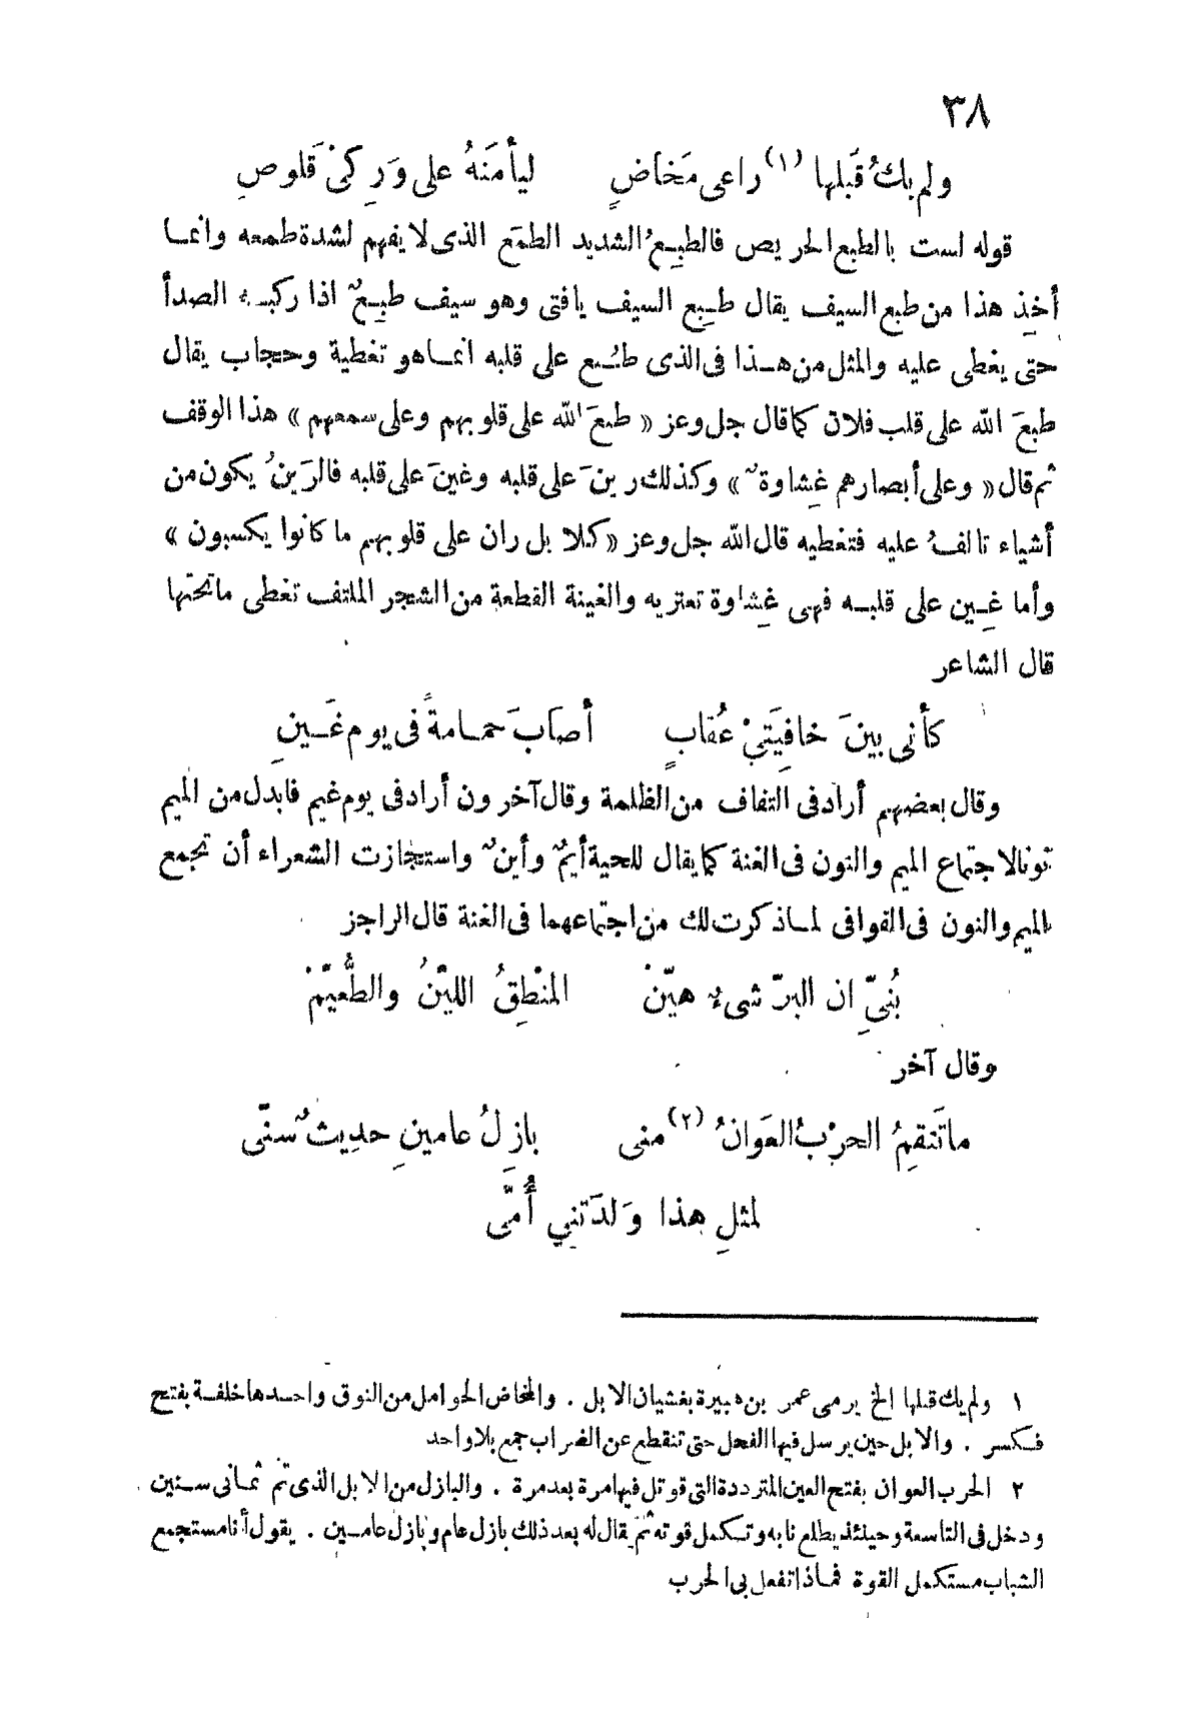 ٣٨
ولم يك قَبلها (١) راعى مَخاضٍ ليأمَنَهُ على وَرِكىْ قَلوصِ
قوله لست بالطبع الحريص فالطبِعُ الشديد الطمَع الذى لا يفهم لشدة طمعه وانما
أُخِذ هذا من طبع السيف يقال طبِع السيف يافتى وهو سيف طبِعٌ اذا ركبه الصدأ
حتى يغطى عليه والمثل من هذا فى الذى طُبع على قلبه انما هو تغطية وحجاب يقال
طبعَ الله على قلب فلان كما قال جل وعز « طبعَ الله على قلوبهم وعلى سمعهم » هذا الوقف
ثم قال « وعلى أبصارهم غِشاوةٌ » وكذلك رينَ على قلبه وغينَ على قلبه فالرَينُ يكون من
أشياء تالفُ عليه فتغطيه قال الله جل وعز « كلا بل ران على قلوبهم ما كانوا يكسبون »
وأما غِين على قلبه فهى غِشاوة تعتريه والغينة القطعة من الشجر الملتف تغطى ماتحتها
قال الشاعر
كأنى بينَ خافِيَتَىْ عُقابٍ أصابَ حمامةً فى يوم غَينِ
وقال بعضهم أراد فى التفاف من الظلمة وقال آخرون أراد فى يوم غيم فابدل من الميم
نونا لاجتماع الميم والنون فى الغنة كما يقال للحية أيمٌ وأينٌ واستجازت الشعراء أن تجمع
الميم والنون فى القوافى لما ذكرت لك من اجتماعهما فى الغنة قال الراجز
بُنىِّ ان البرّ شىءٌ هيّنْ المنْطِقُ الليّنُ والطُّعيّمْ
وقال آخر
ماتَنقِمُ الحرْبُ العَوانُ (٢) منى بازِلُ عامينِ حدِيثٌ سنّى
لمثلِ هذا وَلدَتنِي أُمّى
١ ولم يك قبلها الخ يرمى عمر بن هبيرة بغشيان الابل . والمخاض الحوامل من النوق واحدها خلفة بفتح
فكسر . والابل حين يرسل فيها الفحل حتى تنقطع عن الضراب جمع بلا واحد
٢ الحرب العوان بفتح العين المترددة التى قوتل فيها مرة بعد مرة . والبازل من الابل الذى تم ثمانى سنين
ودخل فى التاسعة وحينئذ يطلع نابه وتكمل قوته ثم يقال له بعد ذلك بازل عام وبازل عامين . يقول أنا مستجمع
الشباب مستكمل القوة فماذا تفعل بى الحرب